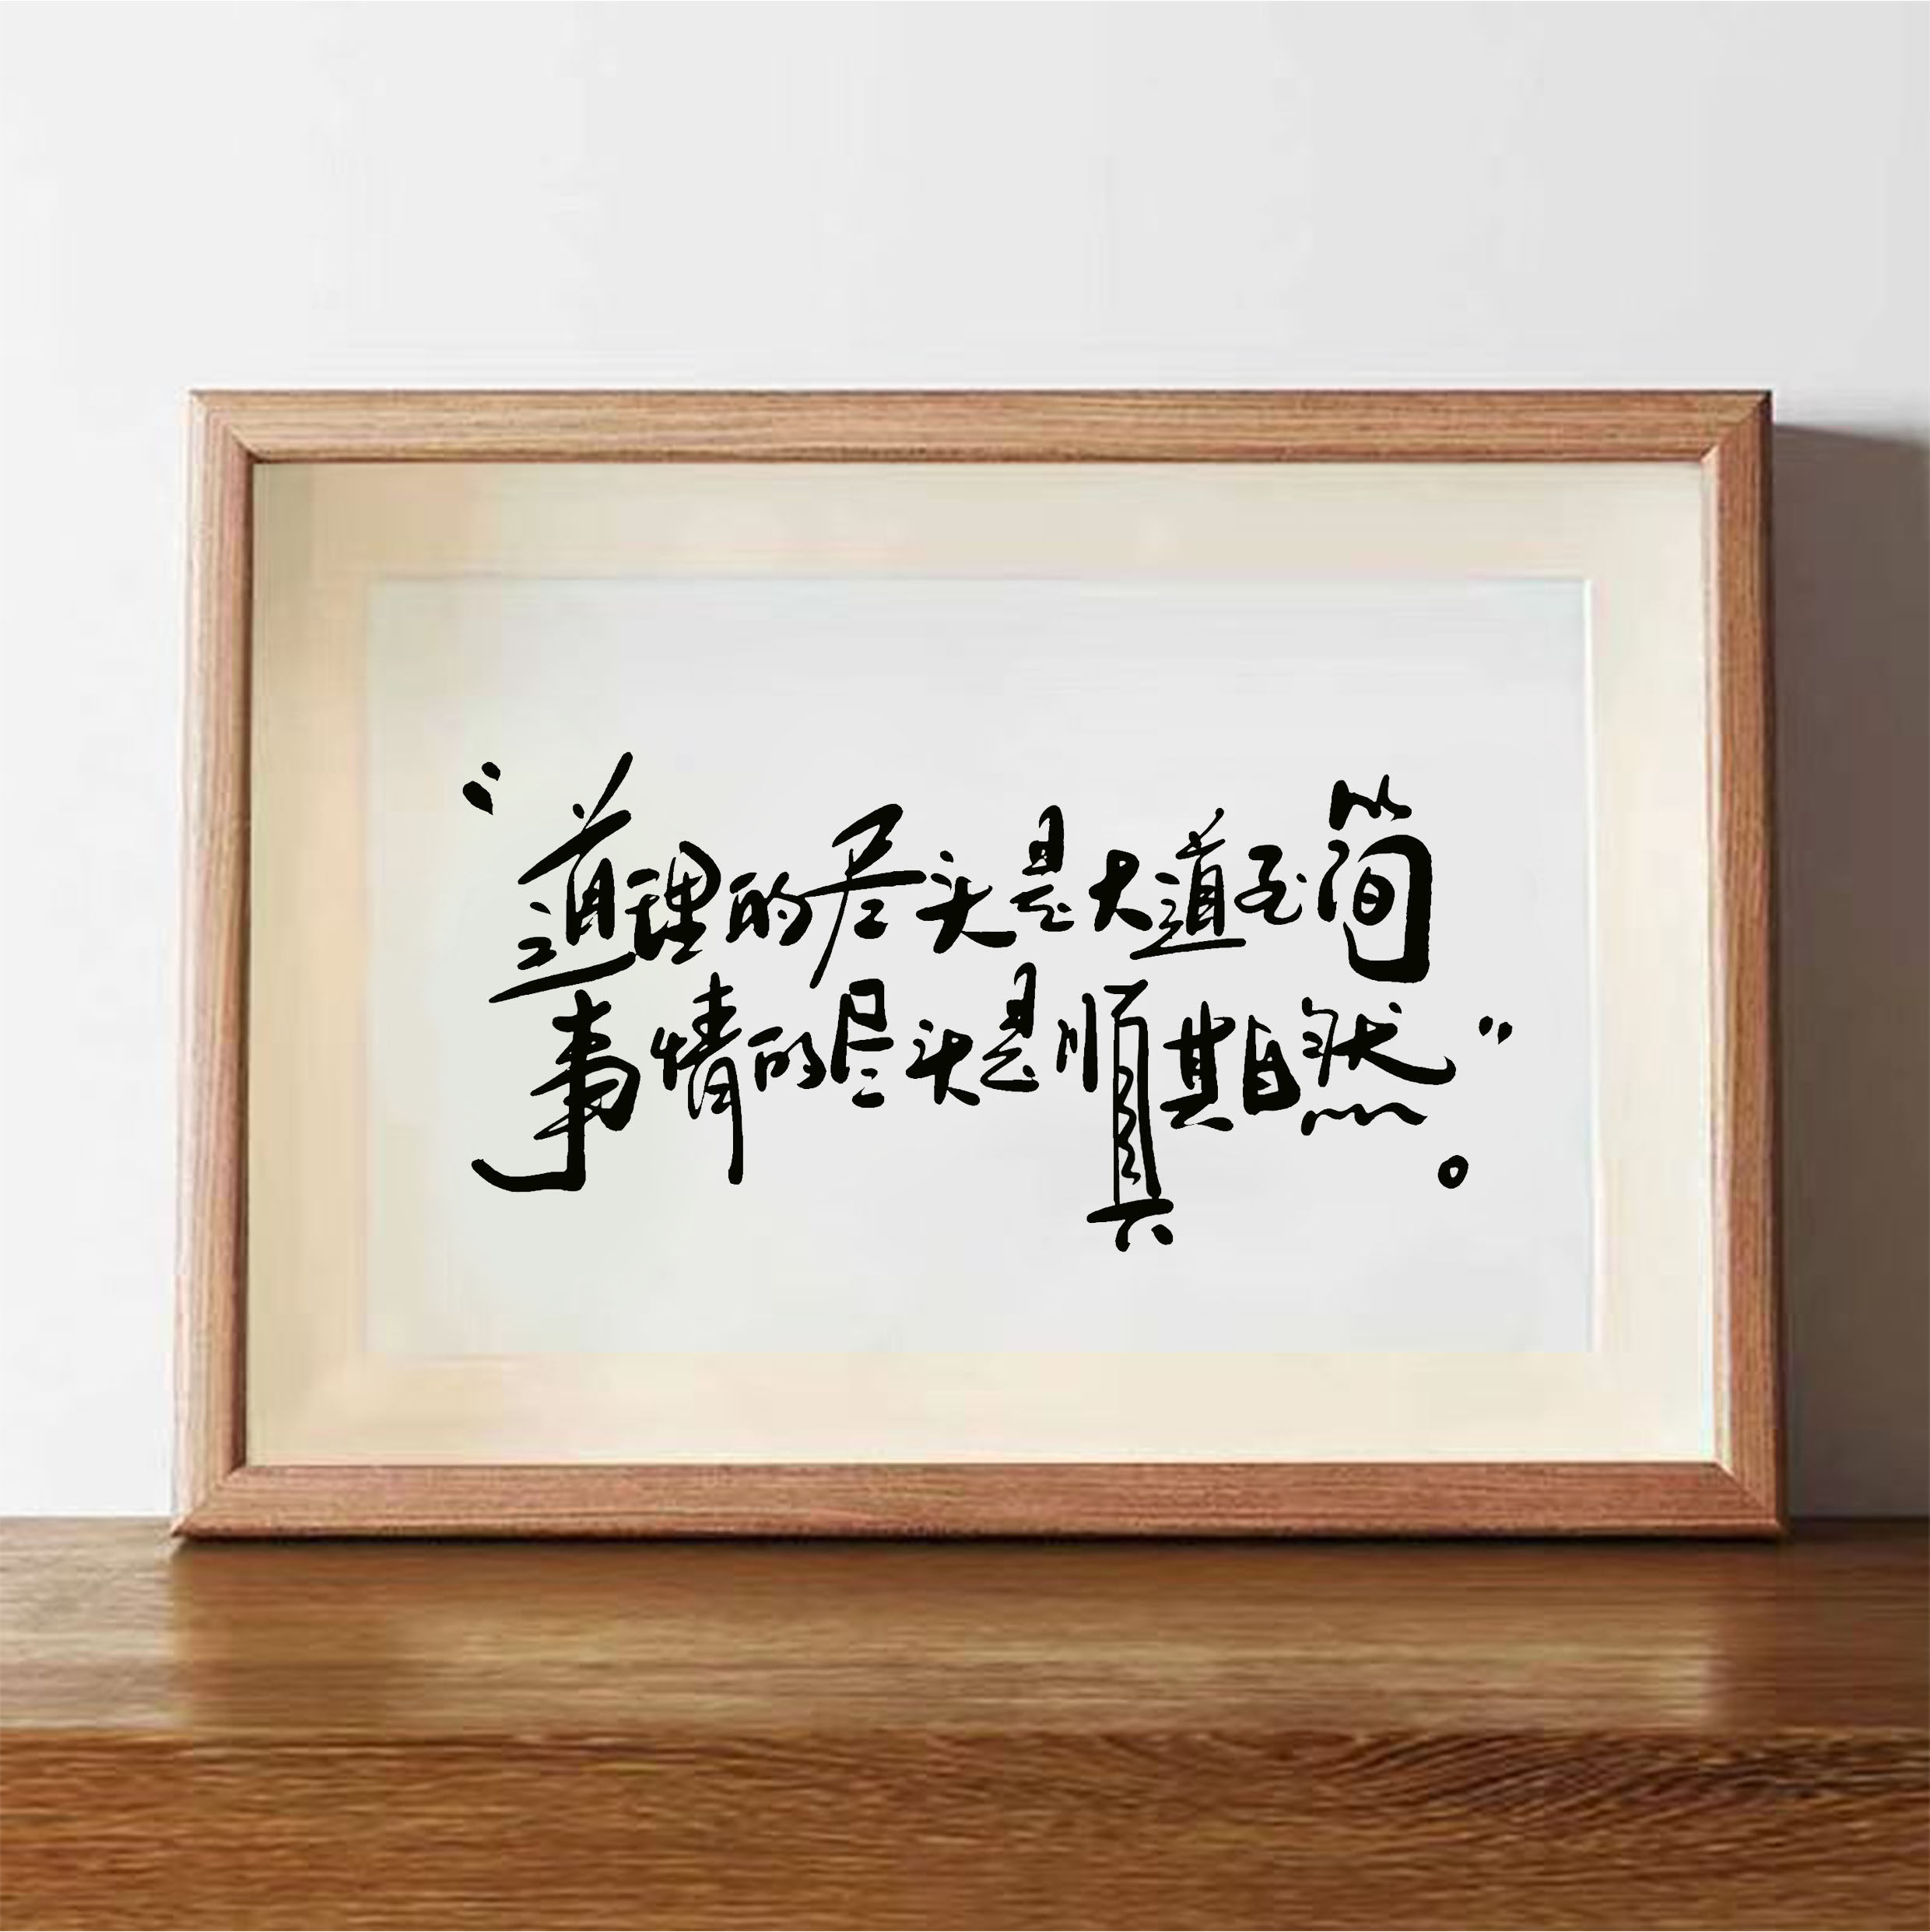 “道理的尽头是大道至简
事情的尽头是顺其自然”。